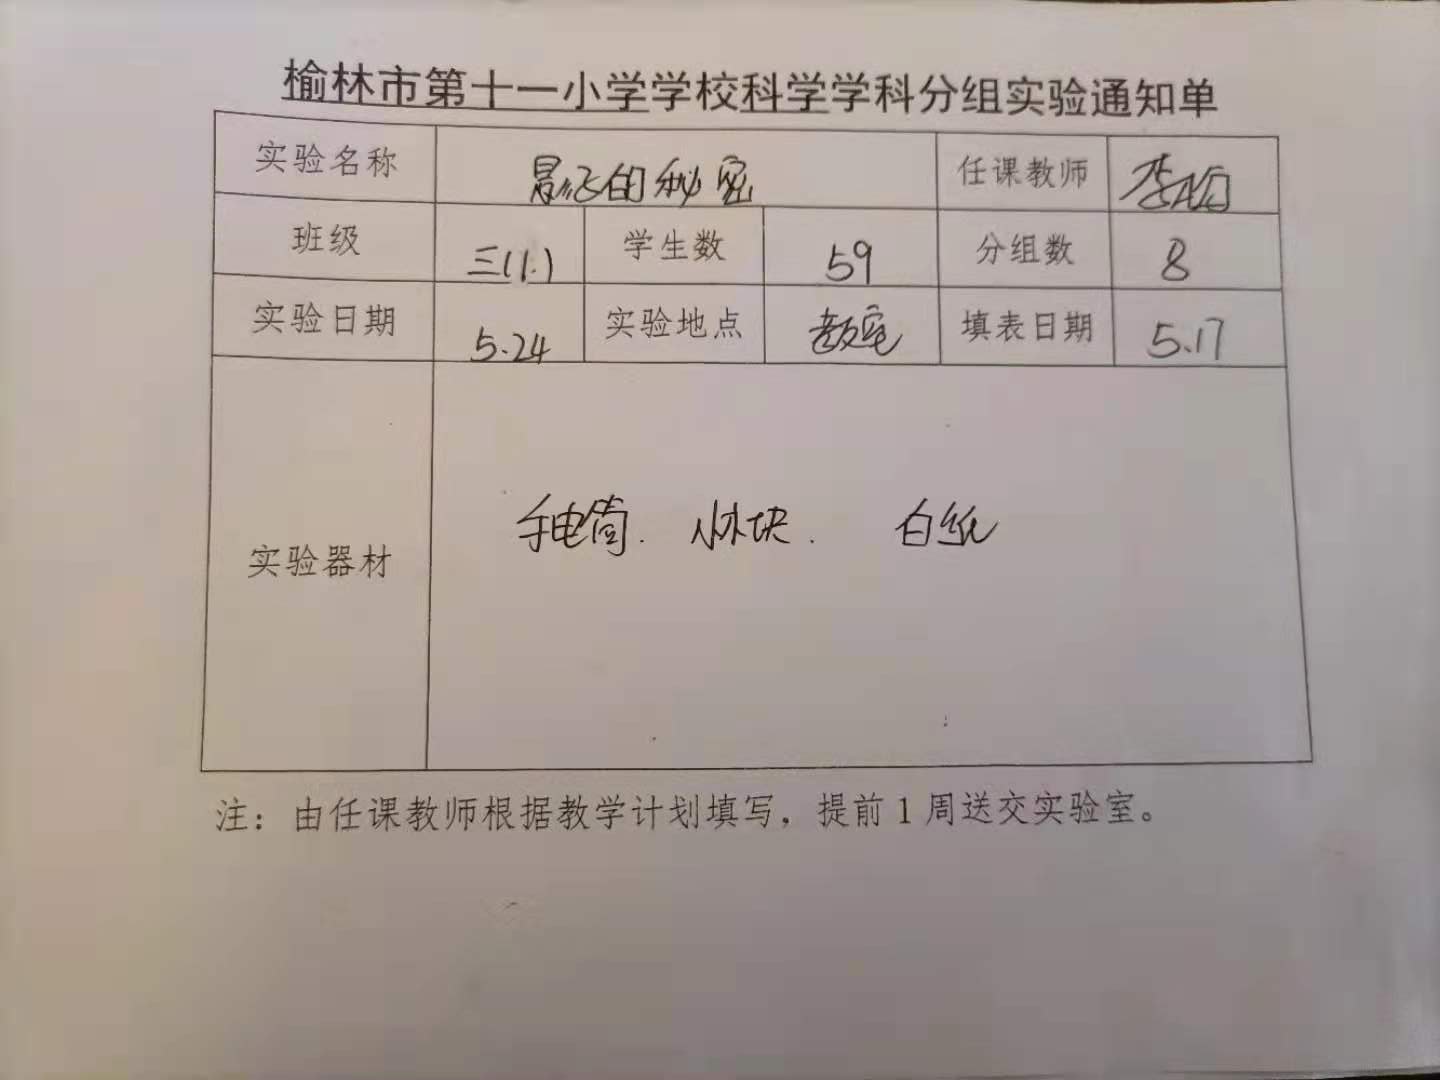 榆林市第十一小学学校科学学科分组实验通知单
实验名称 影子的秘密 任课教师 李
班级 三(1.) 学生数 59 分组数 8
实验日期 5.24 实验地点 教室 填表日期 5.17
实验器材 手电筒. 小木块. 白纸
注：由任课教师根据教学计划填写，提前1周送交实验室。